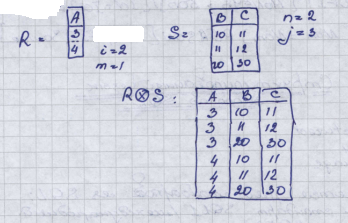 R =
A
3
4
i=2
m=1
S=
B C
10 11
11 12
20 30
n=2
j=3
R⊗S :
A B C
3 10 11
3 11 12
3 20 30
4 10 11
4 11 12
4 20 30